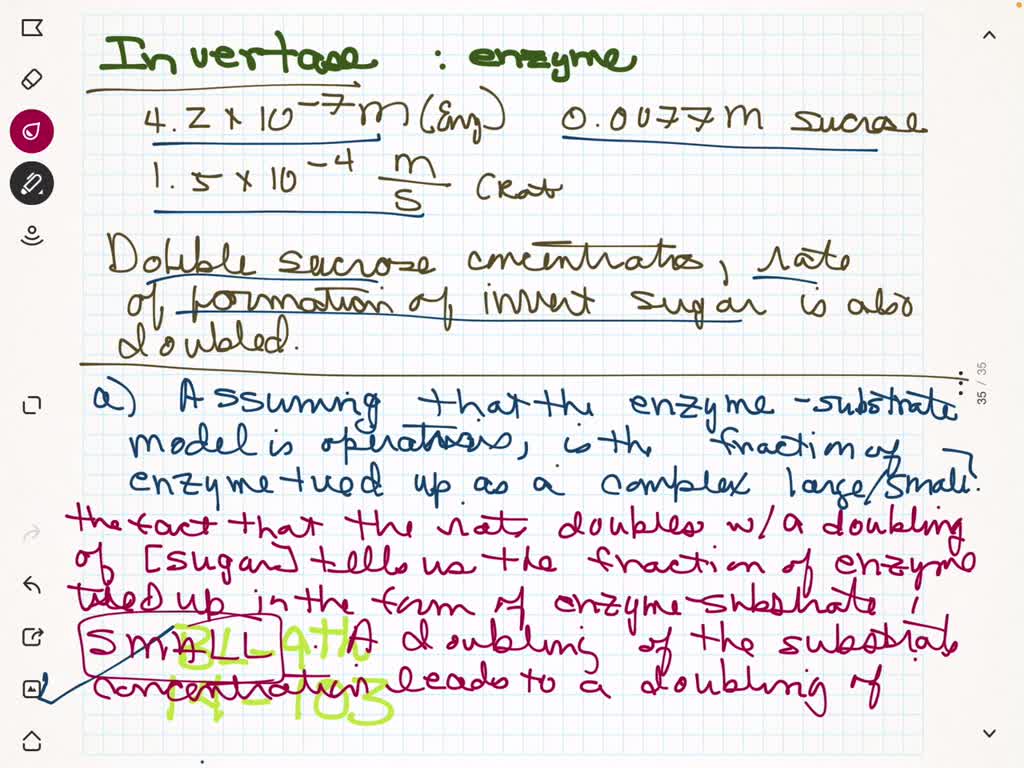 Invertase : enzyme
4.2 × 10⁻⁷ m (Enz) 0.0077 m sucrose
1.5 × 10⁻⁴ m/s (Rat
Double sucrose concentration, rate
of formation of invert sugar is also
doubled.
a) Assuming that the enzyme-substrate
model is operations, is the fraction of
enzyme tied up as a complex large/small?
the fact that the rate doubles w/a doubling
of [sugar] tells us the fraction of enzyme
tied up in the form of enzyme-substrate i
SMALL. A doubling of the substrate
BL-9th
concentration leads to a doubling of
14-103
35 / 35